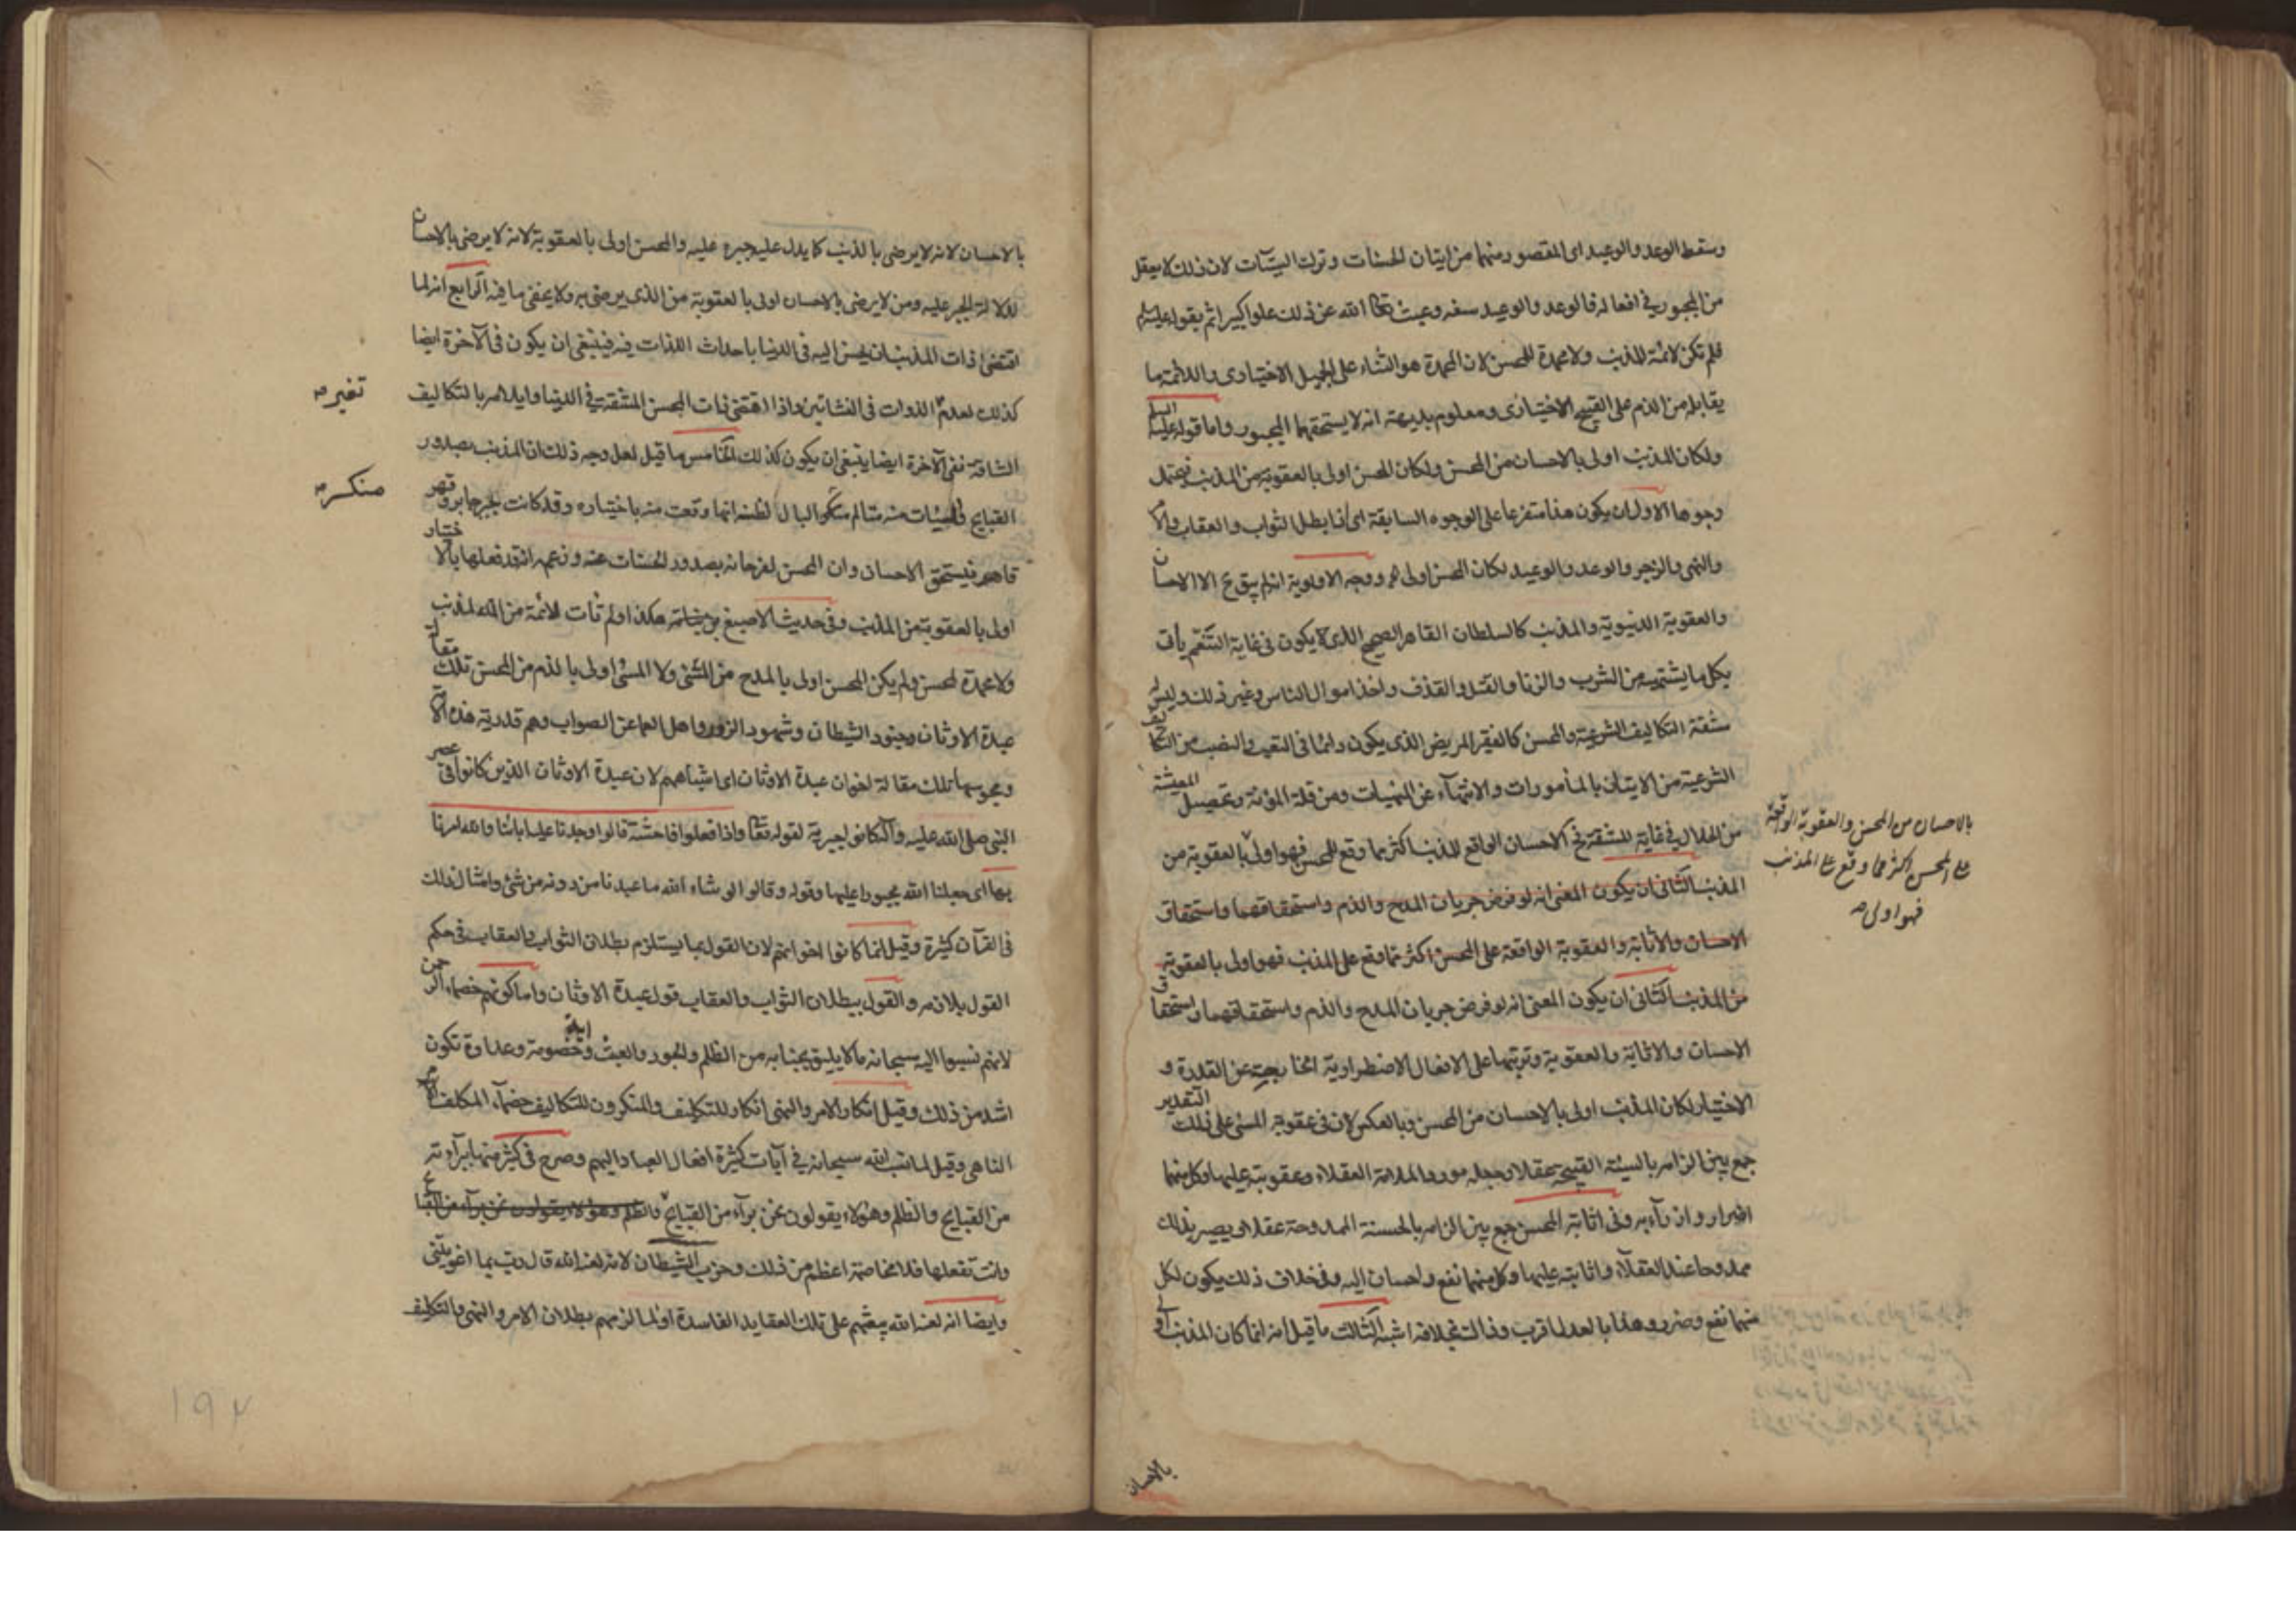 وسقط الوعد والوعيد اى المقصود منهما من ايتان الحسنات وترك السيّآت لان ذلك لا يعقل
من المجبور فى افعاله فالوعد والوعيد سفه وعبث تعالى الله عن ذلك علوا كبيرا ثم بقوله عليه السلم
فلم تكن لائمة للمذنب ولا محمدة للمحسن لان المحمدة هو الثناء على الجميل الاختيارى واللائمة ما
يقابله من الذم على القبيح الاختيارى ومعلوم بديهة انه لا يستحقهما المجبور واما قوله عليه السلم
ولكان المذنب اولى بالاحسان من المحسن ولكان المحسن اولى بالعقوبة من المذنب فيحتمل
وجوها الاول ان يكون هذا متفرعا على الوجوه السابقة اى اذا بطل الثواب والعقاب والامر
والنهى والزجر والوعد والوعيد لكان المحسن اولى ووجه الاولوية انه لم يبق ح الا الاحسان
والعقوبة الدنيوية والمذنب كالسلطان القاهر الصحيح الذى لا يكون فى غاية التنعّم يأتى
بكل ما يشتهيه من الشرب والزنا والقتل والقذف واخذ اموال الناس وغير ذلك وليس له
مشقة التكاليف الشرعية والمحسن كالفقير المريض الذى يكون دائما فى التعب والنصب من التكاليف
الشرعية من الايتان بالمأمورات والانتهآء عن المنهيات ومن قلة المؤنة وتحصيل المعيشة
من الحلال فى غاية المشقة فح الاحسان الواقع للمذنب اكثر مما وقع للمحسن فهو اولى بالعقوبة من
بالاحسان من المحسن والعقوبة الواقعة
على المحسن اكثر مما وقع على المذنب
فهو اولى صح
المذنب الثانى ان يكون المعنى انه لو فرض جريان المدح والذم واستحقاقهما واستحقاق
الاحسان والاثابة والعقوبة الواقعة على المحسن اكثر مما وقع على المذنب فهو اولى بالعقوبة
من المذنب الثانى ان يكون المعنى انه لو فرض جريان المدح والذم واستحقاقهما واستحقاق
الاحسان والاثابة والعقوبة وترتبها على الافعال الاضطرارية الخارجية عن القدرة و
الاختيار لكان المذنب اولى بالاحسان من المحسن وبالعكس لان فى عقوبة المسئ على ذلك التقدير
جمع بين الزامه بالسيئة القبيحة عقلا وجعله مورد الملامة العقلاء وعقوبته عليها وكل منهما
اضرار وازرآء به وفى اثابة المحسن جمع بين الزامه بالحسنة الممدوحة عقلا ويصير بذلك
ممدوحا عند العقلآء واثابته عليها وكل منهما نفع واحسان اليه وفى خلاف ذلك يكون لكل
منهما نفع وضرر وهذا بالعدل اقرب وذاك بخلافه اشبه الثالث ما قيل انه انما كان المذنب اولى
بالاحسان
بالاحسان لانه لا يرضى بالذنب كما يدل عليه جبره عليه والمحسن اولى بالعقوبة لانه لا يرضى بالاحسان
لدلالة الجبر عليه ومن لا يرضى بالاحسان اولى بالعقوبة من الذى يرضى به ولا يخفى ما فيه الرابع انه لما
اقتضى ذات المذنب ان يحسن اليه فى الدنيا باحداث اللذات فيه فينبغى ان يكون فى الآخرة ايضا
كذلك لعدم الذوات فى النشأتين واذا اقتضى ذات المحسن المشقة فى الدنيا وايلامه بالتكاليف
تغير صح
الشاقة ففى الآخرة ايضا ينبغى ان يكون كذلك الخامس ما قيل لعل وجه ذلك ان المذنب بصدور
القبايح والسيئات منه متألم منكر البال لظنه انها وقعت منه باختياره وقد كانت بجبر جابر وقهر
منكسر صح
قاهر فيستحق الاحسان وان المحسن لفرحانه بصدور الحسنات عنه وزعمه انه قد فعلها بالاختيار
اولى بالعقوبة من المذنب وفى حديث الاصبغ بن نباتة هكذا ولم تأت لائمة من الله لمذنب
ولا محمدة لمحسن ولم يكن المحسن اولى بالمدح من المسئ ولا المسئ اولى بالذم من المحسن تلك مقالة
عبدة الاوثان وجنود الشيطان وشهود الزور واهل العما عن الصواب وهم قدرية هذه الامة
ومجوسها تلك مقالة اخوان عبدة الاوثان اى اشباههم لان عبدة الاوثان الذين كانوا فى عصر
النبى صلى الله عليه وآله كانوا جبرية لقوله تعالى واذا فعلوا فاحشة قالوا وجدنا عليها اباءنا والله امرنا
بها اى جعلنا الله مجبورا عليها وقوله وقالوا لو شاء الله ما عبدنا من دونه من شئ وامثال ذلك
فى القرآن كثيرة وقيل انما كانوا اخوانهم لان القول بما يستلزم بطلان الثواب والعقاب فى حكم
القول بلازمه والقول ببطلان الثواب والعقاب قول عبدة الاوثان واما كونهم خصماء الرحمن
لانهم نسبوا اليه سبحانه ما لا يليق بجنابه من الظلم والجور والعبث واية خصومة وعداوة تكون
اشد من ذلك وقيل انكار الامر والنهى انكار للتكليف والمنكرون للتكاليف خصمآء المكلف الامر
الناهى وقيل لما نسب الله سبحانه فى آيات كثيرة افعال العباد اليهم وصرح فى كثير منها ببرآءته
من القبايح والظلم وهؤلاء يقولون نحن برآء من القبايح
وانت تفعلها فلا مخاصمة اعظم من ذلك وحزب الشيطان لانه لعنه الله قال رب بما اغويتنى
وايضا انه لعنه الله يبعثهم على تلك العقايد الفاسدة او لما الزمهم بطلان الامر والنهى والتكليف
۱۹۲